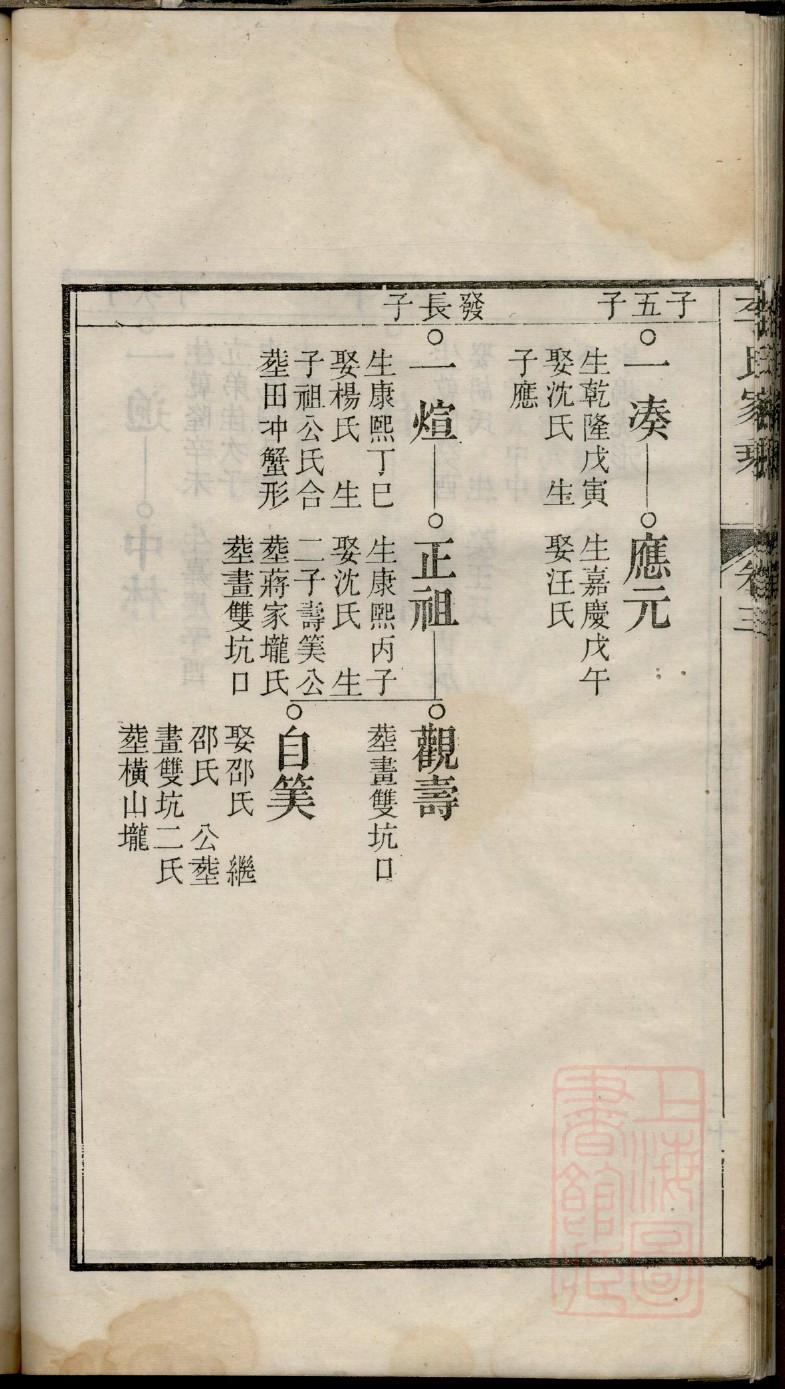 李氏家乘
卷三
子五子
一湊
生乾隆戊寅
娶沈氏 生
子應
應元
生嘉慶戊午
娶汪氏
發長子
一煊
生康熙丁巳
娶楊氏 生
子祖公氏合
塟田冲蟹形
正祖
生康熙丙子
娶沈氏 生
二子壽笑公
塟蔣家壠氏
塟畫雙坑口
觀壽
塟畫雙坑口
自笑
娶邵氏 繼
邵氏 公塟
畫雙坑二氏
塟橫山壠
上海圖
書館藏